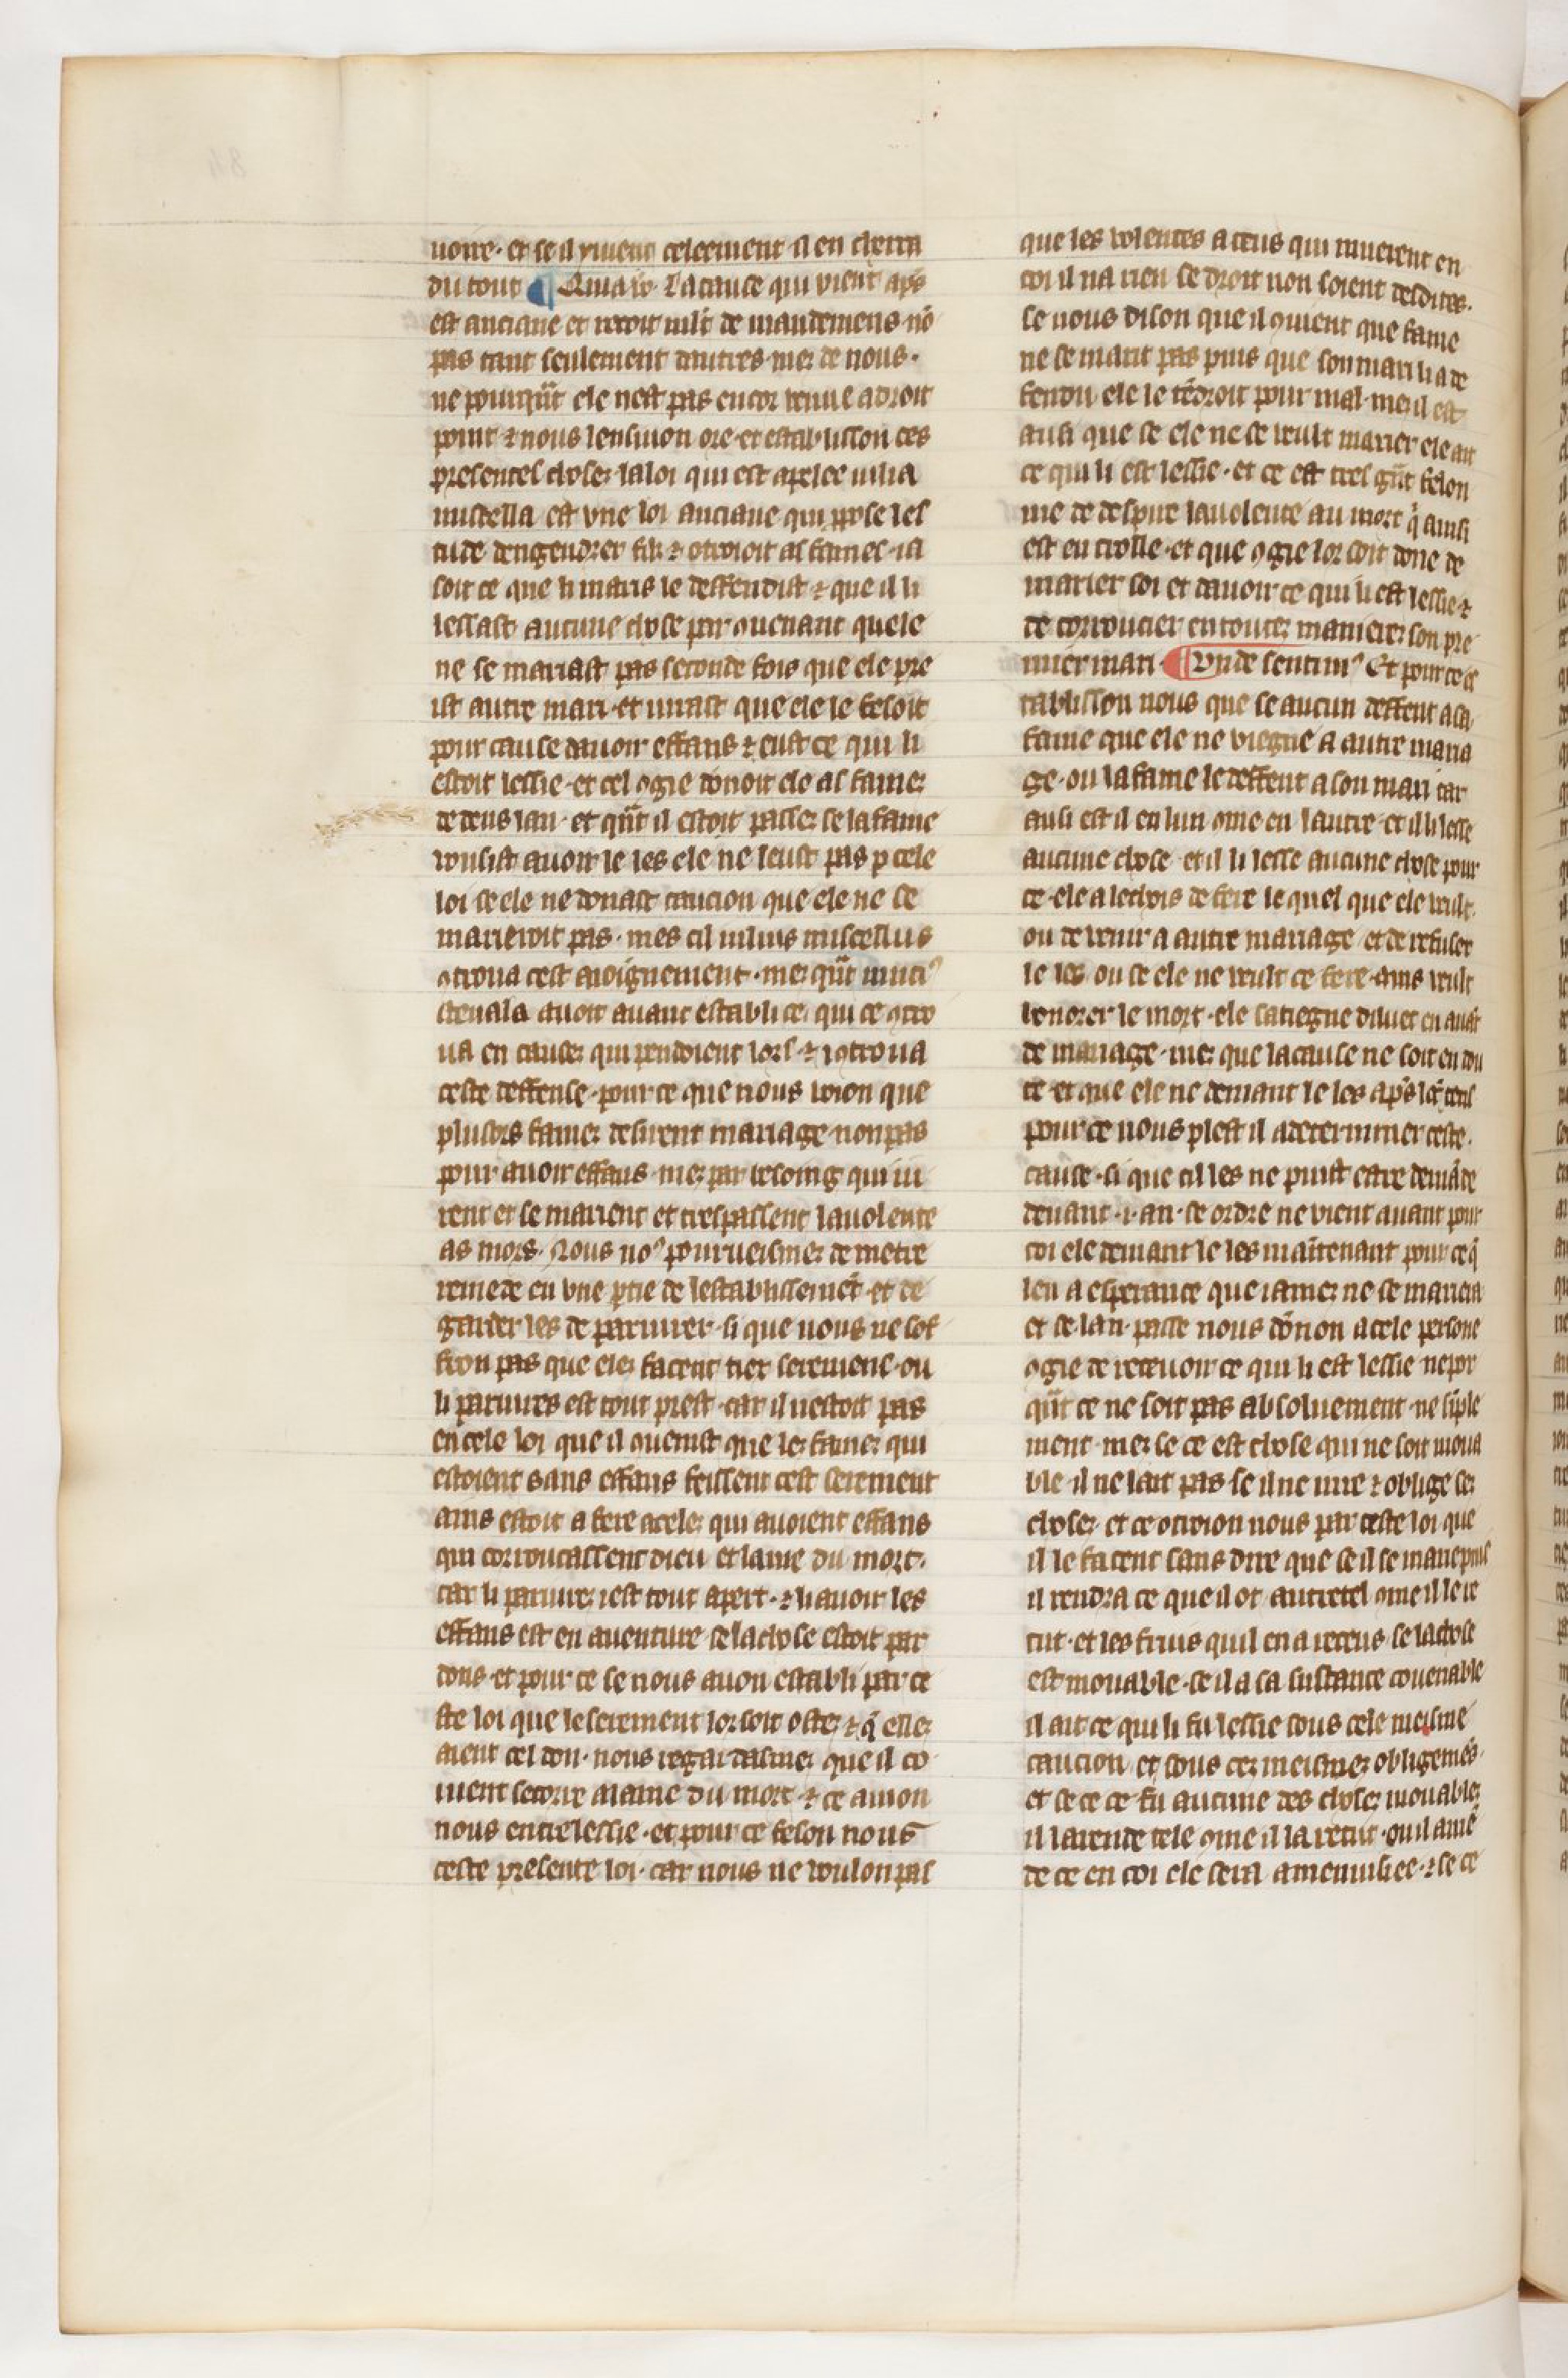 uoire· et se il viuent celeement il en cherra
du tout ¶ Quia vo· La cause qui vient aps
est anciane et recoit mlt de mandemens nō
pas tant seulement dautres mes de nous·
ne pourqūt ele nest pas encor venue a droit
point ⁊ nous lensiuon ore et establisson ces
presentes choses la loi qui est apelee iulia
miscella est vne loi anciane qui ppose les
tude dengendrer fils ⁊ otroioit as fames ia
soit ce que li maris le deffendist ⁊ que il li
lessast aucune chose par ꝯuenant quele
ne se mariast pas seconde fois que ele pre
ist autre mari et iurast que ele le fesoit
pour cause dauoir effans ⁊ eust ce qui li
estoit lessie· et cel ꝯgie donoit ele as fames
dedens lan· et qūt il estoit passes se la fame
vousist auoir le les ele ne leust pas p cele
loi se ele ne donast caucion que ele ne se
marieroit pas· mes cil iulius miscellus
ꝯtroua cest aloignement· mes qūt muciꝰ
sceuala auoit auant establi ce qui ce ꝯtro
ua en causes qui pendoient lors ⁊ ꝯtroua
ceste deffense· pour ce que nous voion que
plusors fames desirent mariage non pas
pour auoir effans mes par besoing qui iu
rent et se marient et trespassent la volente
as mors· Nous noꝰ pourueismes de metre
remede en vne ptie de lestablissemēt et de
garder les de pariurer· si que nous ne sof
fron pas que eles facent tiex seremens· ou
li pariures est tout prest· car il nestoit pas
en cele loi que il ꝯuenist que les fames qui
estoient sans effans feissent cest serement
ains estoit a fere a celes qui auoient effans
qui corroucassent dieu et lame du mort·
car li pariures iest tout apert· ⁊ li auoir les
effans est en auenture se la chose estoit par
dons· et pour ce se nous auon establi par ce
ste loi que le serement lor soit ostes ⁊ q̄ elles
aient cel don· nous regardasmes que il co
uient secorre a lame du mort· ⁊ ce auion
nous entrelessie· et pour ce feson nous
ceste presente loi· car nous ne voulon pas
que les volentes a ceus qui muerent en
coi il na rien se droit non soient desdites·
se nous dison que il ꝯuient que fame
ne se marit pas puis que son mari li a de
fendu ele le tēdroit pour mal· mes il est
ausi que se ele ne se veult marier ele ait
ce qui li est lessie· et ce est tres gūt felon
nie de despire la volente au mort q̄ ausi
est en trosse· et que ꝯgie lor soit done de
marier soi et dauoir ce qui li est lessie ⁊
de corroucier en toutes manieres son pre
mier mari· ¶ Vnde sentimꝰ Et pour ce es
tablisson nous que se aucun deffent a sa
fame que ele ne viegne a autre maria
ge· ou la fame le deffent a son mari car
ausi est il en lun ꝯme en lautre et il li lesse
aucune chose et il li lesse aucune chose pour
ce· ele a le chois de fere le quel que ele veult
ou de venir a autre mariage et de refuser
le les ou se ele ne veult ce fere ains veult
honorer le mort· ele satiegne diluec en auāt
de mariage· mes que la cause ne soit en dou
te et que ele ne demant le les aps lōc tens
pour ce nous plest il a determiner ceste·
cause· si que cil les ne puist estre demāde
deuant ·i· an· se ordre ne vient auant pour
coi ele demant le les maintenant pour ce q̄
len a esperance que iames ne se mariera
et se lan passe nous dōnon a cele persone
ꝯgie de receuoir ce qui li est lessie ne por
qūt ce ne soit pas absoluement ne siple
ment mes se ce est chose qui ne soit moua
ble il ne lait pas se il ne iure ⁊ oblige ses
choses et ce otroion nous par ceste loi que
il le facent sans dire que se il se marie puis
il rendra ce que il ot autretel ꝯme il le re
cut· et les fruis quil en a receus se la chose
est mouable· se il a sa sustance couenable
il ait ce qui li fu lessie sous cele meisme
caucion et sous ces meismes obligemēs·
et se ce ce fu aucune des choses mouables
il la rende tele ꝯme il la recut· ou il amē
de ce en coi ele sera amenuisiee· ⁊ se ce